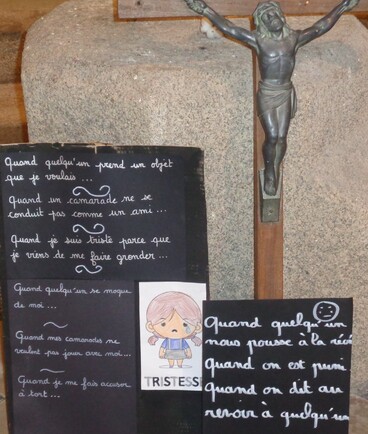 Quand quelqu'un prend un objet
que je voulais ...
Quand un camarade ne se
conduit pas comme un ami ...
Quand je suis triste parce que
je viens de me faire gronder ...
Quand quelqu'un se moque
de moi ...
Quand mes camarades ne
veulent pas jouer avec moi ...
Quand je me fais accuser
à tort ...
TRISTESSE
Quand quelqu'un
nous pousse à la
Quand on est puni
quand on dit au
revoir à quelqu'un